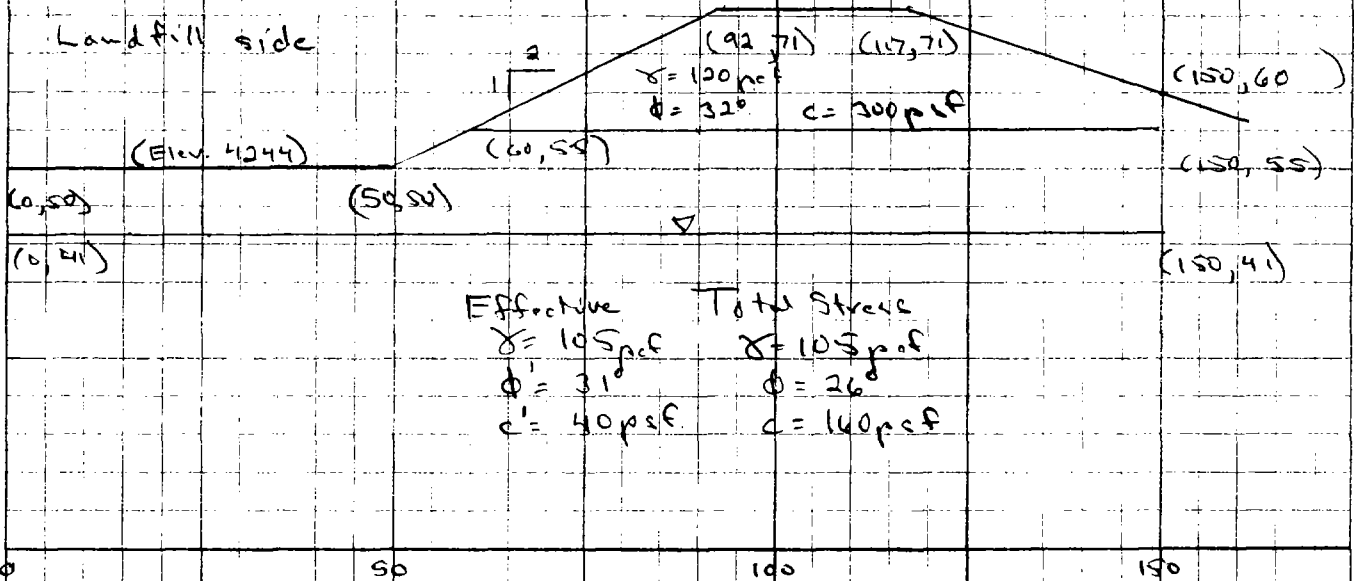 Landfill side
(92,71) (117,71)
2
1
γ = 120 pcf
(150,60)
φ = 32° c = 300 psf
(Elev. 4244)
(60,55)
(150,55)
(0,50)
(50,50)
(0,41)
(150,41)
Effective Total Stress
γ = 105 pcf γ = 105 pcf
φ' = 31° φ = 26°
c' = 40 psf c = 160 psf
0 50 100 150